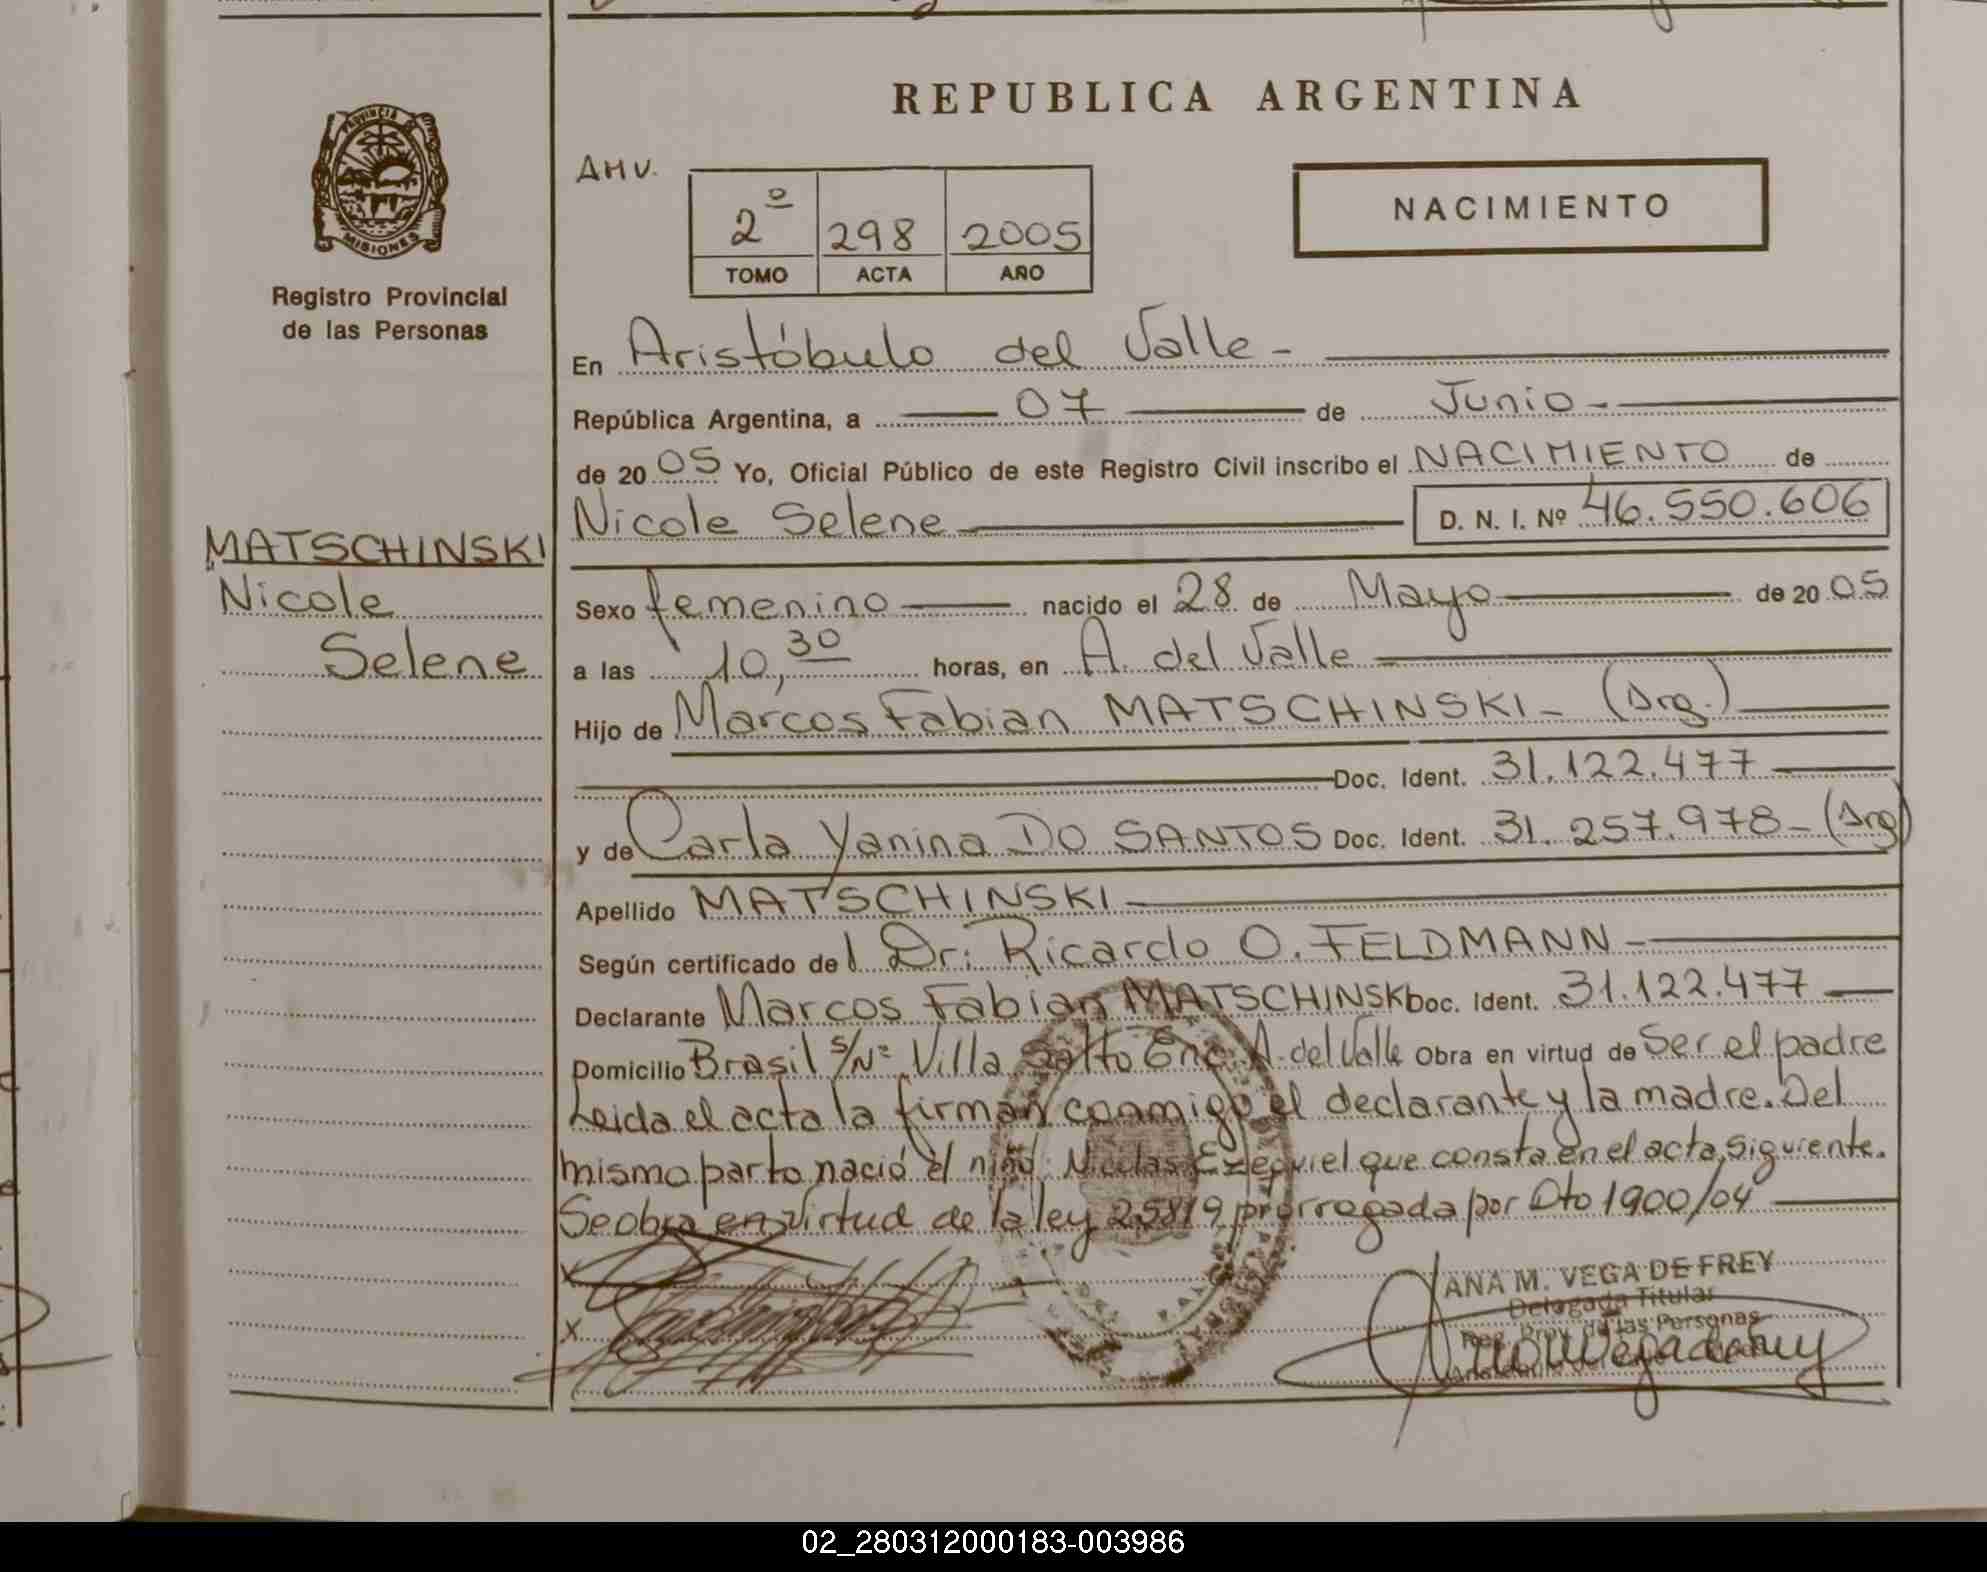 REPUBLICA ARGENTINA
PROVINCIA DE
MISIONES
Registro Provincial
de las Personas
AHV.
2º 298 2005
TOMO ACTA AÑO
NACIMIENTO
En Aristóbulo del Valle -
República Argentina, a 07 de Junio -
de 20 05 Yo, Oficial Público de este Registro Civil inscribo el NACIMIENTO de
Nicole Selene D. N. I. Nº 46.550.606
MATSCHINSKI
Nicole
Selene
Sexo femenino nacido el 28 de Mayo de 20 05
a las 10,30 horas, en A. del Valle
Hijo de Marcos Fabian MATSCHINSKI - (Arg.)
Doc. Ident. 31.122.477
y de Carla Yanina DO SANTOS Doc. Ident. 31.257.978 - (Arg)
Apellido MATSCHINSKI -
Según certificado del Dr: Ricardo O. FELDMANN -
Declarante Marcos Fabian MATSCHINSKI Doc. Ident. 31.122.477
Domicilio Brasil S/Nº Villa Salto Enc. A. del Valle Obra en virtud de Ser el padre
Leida el acta la firman conmigo el declarante y la madre. Del
mismo parto nació el niño Nicolas Ezequiel que consta en el acta siguiente.
Se obra en virtud de la ley 25819 prorrogada por Dto 1900/04
X
X
ANA M. VEGA DE FREY
Delegada Titular
Reg. Prov. de las Personas
02_280312000183-003986